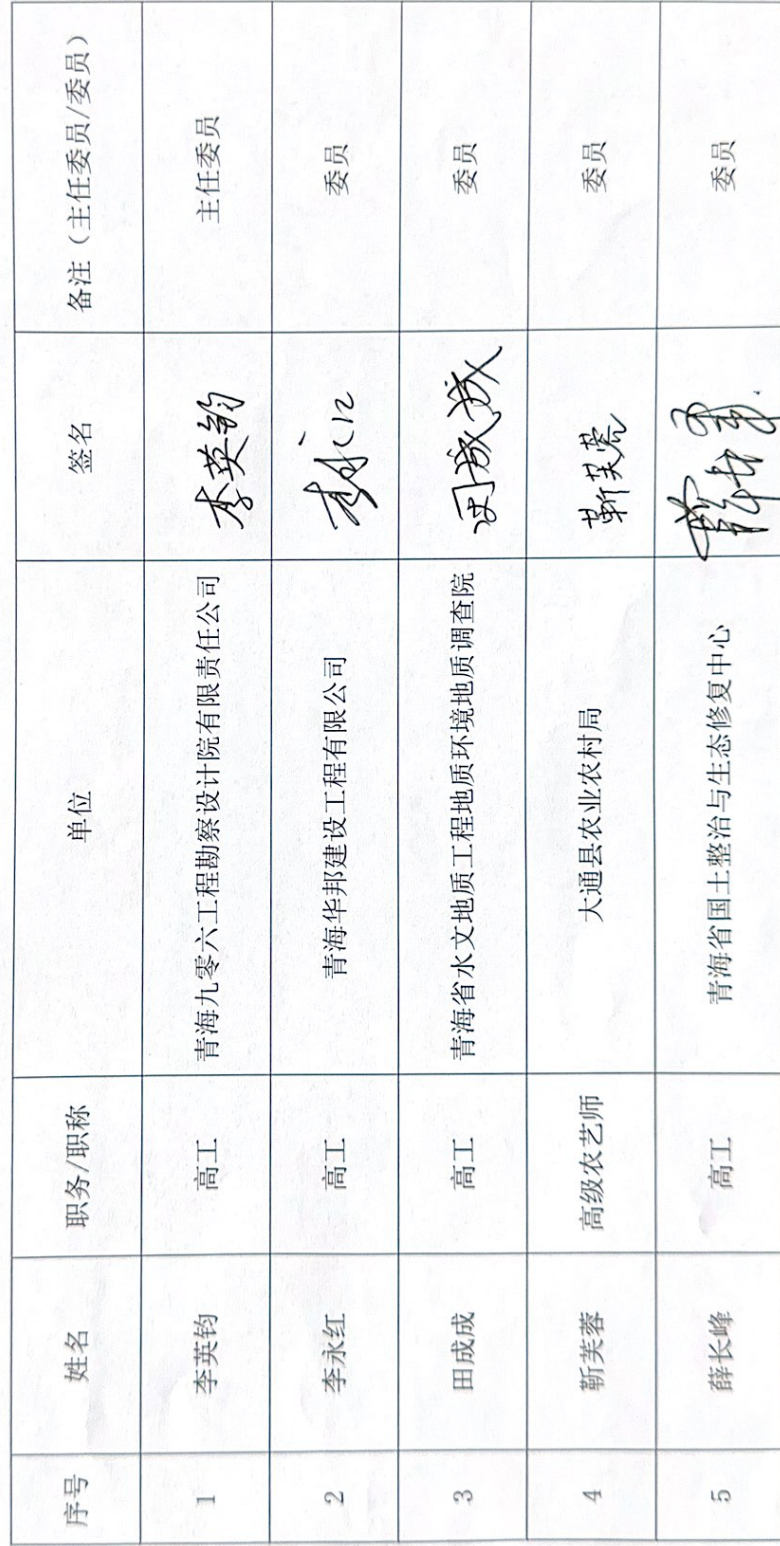 序号 姓名 职务/职称 单位 签名 备注（主任委员/委员）
1 李英钧 高工 青海九零六工程勘察设计院有限责任公司 李英钧 主任委员
2 李永红 高工 青海华邦建设工程有限公司 李永红 委员
3 田成成 高工 青海省水文地质工程地质环境地质调查院 田成成 委员
4 靳芙蓉 高级农艺师 大通县农业农村局 靳芙蓉 委员
5 薛长峰 高工 青海省国土整治与生态修复中心 委员